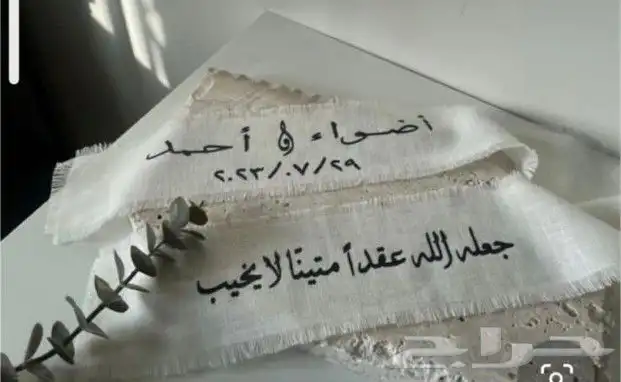 أضواء و أحمد
٢٠٢٣/٠٧/٢٩
جعله الله عقداً متينًا لا يخيب
حراج